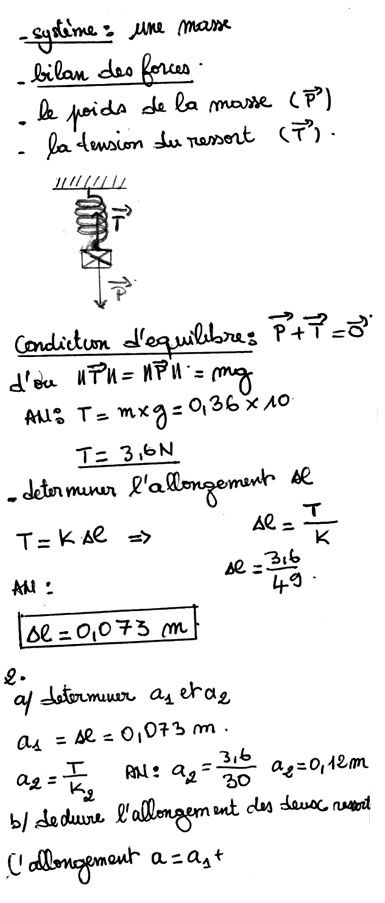 - système : une masse
- bilan des forces.
- le poids de la masse (P⃗)
- la tension du ressort (T⃗).
T⃗
P⃗
Condiction d'equilibre : P⃗ + T⃗ = 0⃗
d'où ||T⃗|| = ||P⃗|| = mg
AN : T = m × g = 0,36 × 10
T = 3,6N
- determiner l'allongement Δl
T = K Δl => Δl = T/K
AN : Δl = 3,6/49.
Δl = 0,073 m
2.
a/ determiner a₁ et a₂
a₁ = Δl = 0,073 m.
a₂ = T/K₂ AN : a₂ = 3,6/30 a₂ = 0,12m
b/ deduire l'allongement des deux ressort
l'allongement a = a₁ +